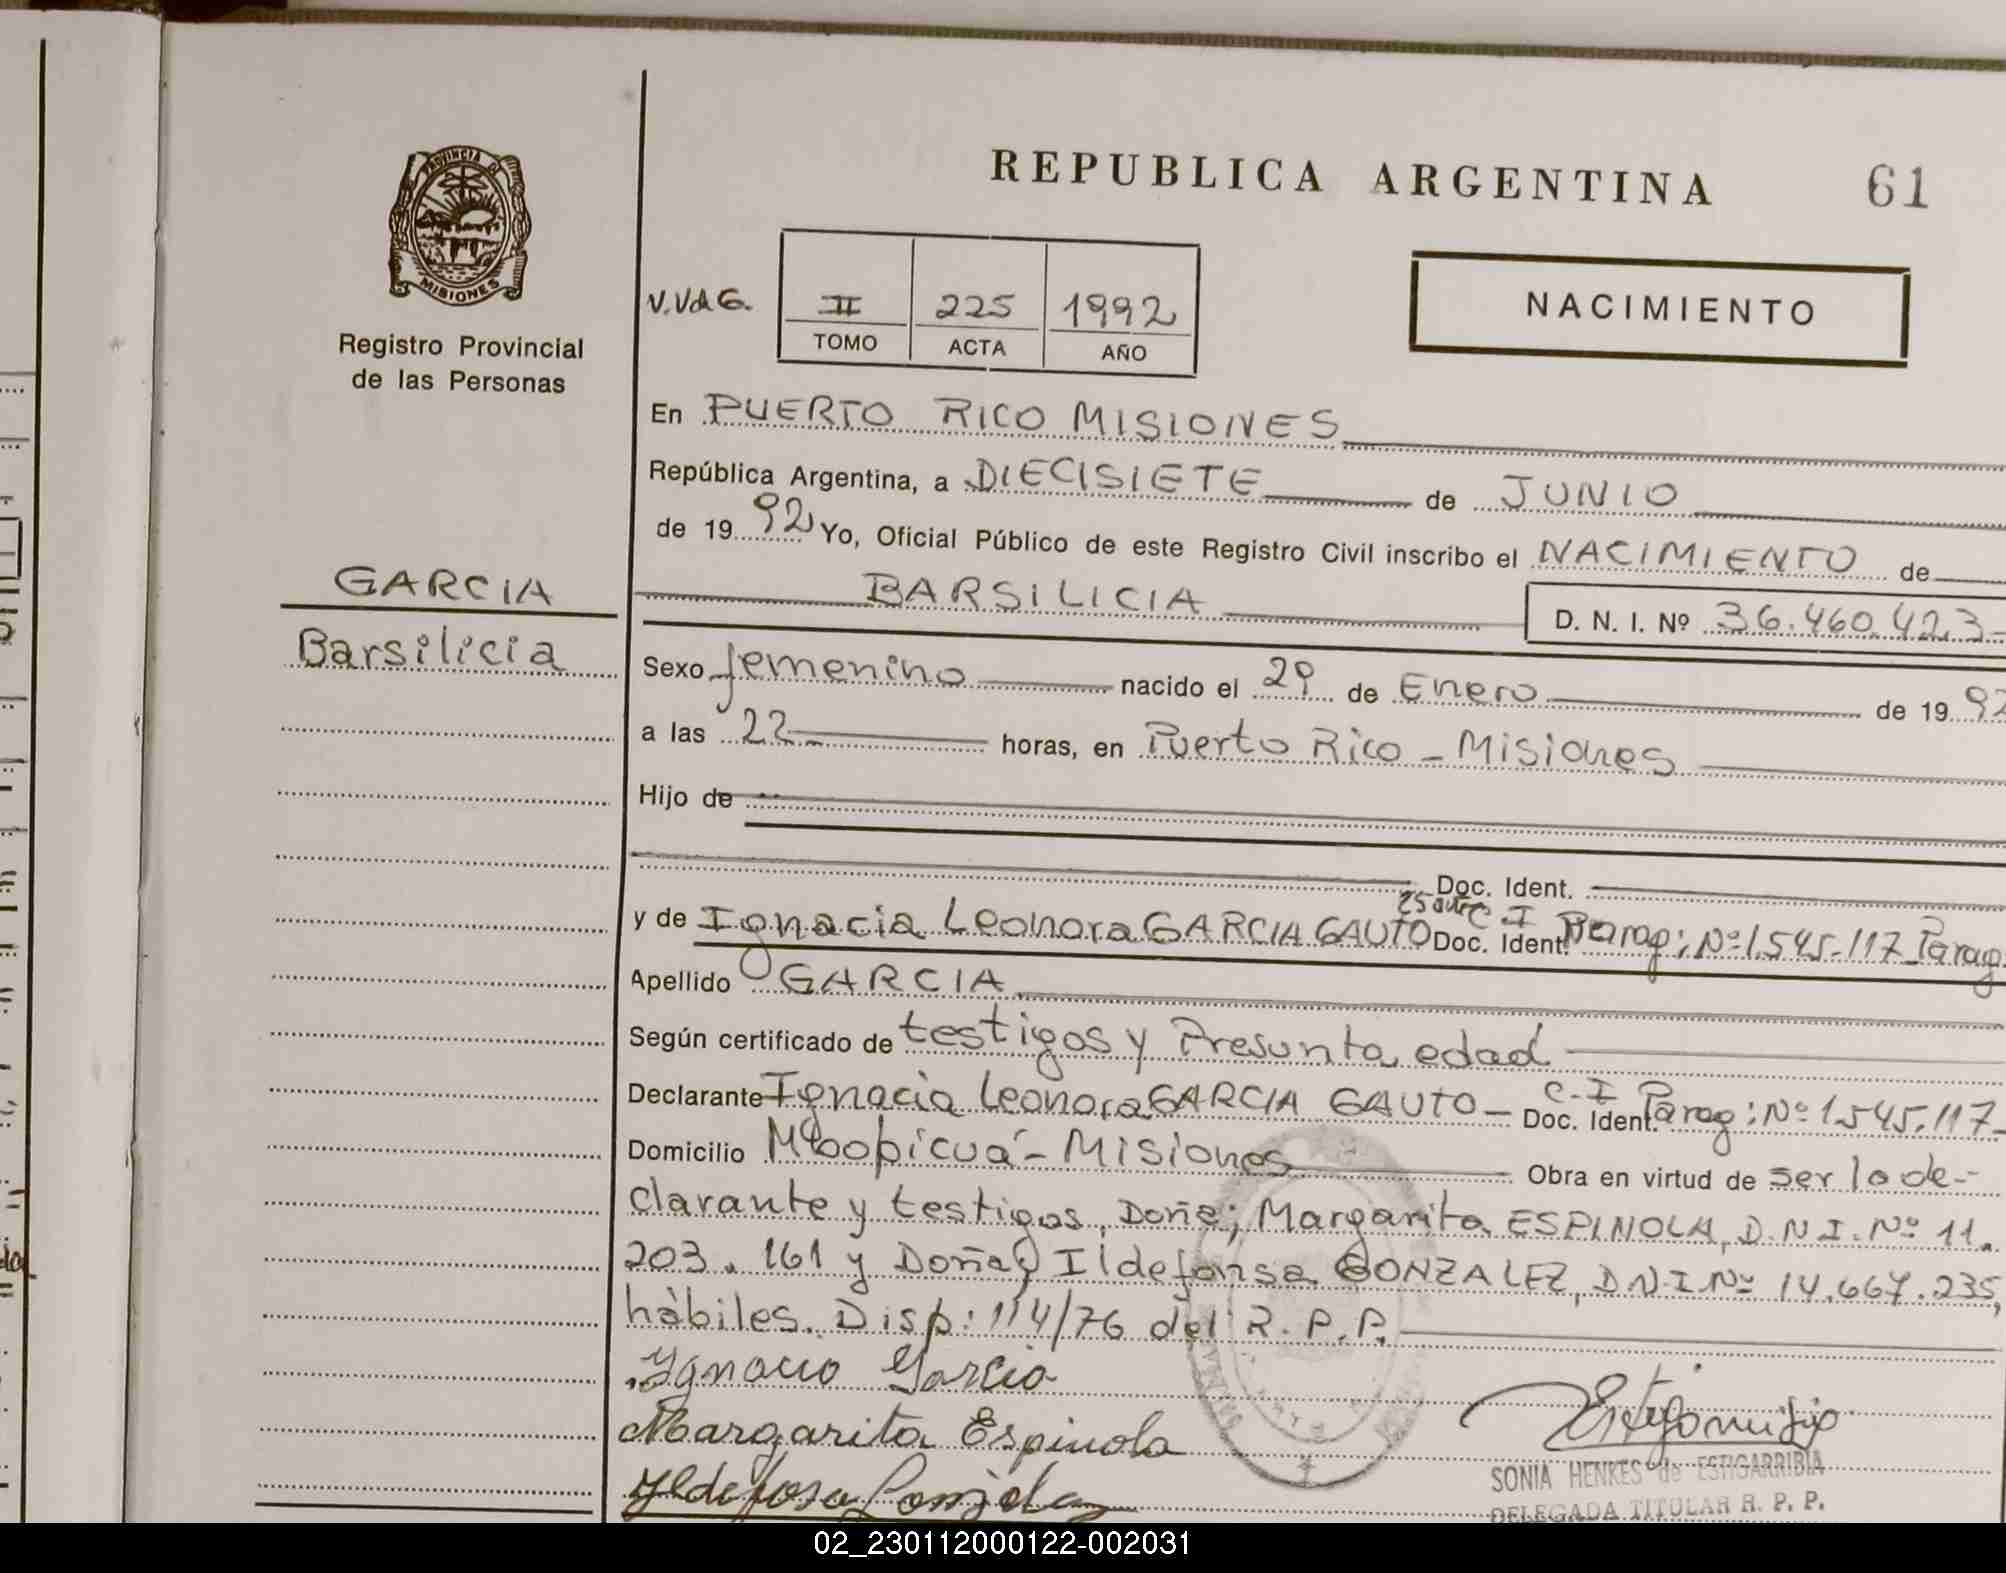 REPUBLICA ARGENTINA 61
PROVINCIA DE
MISIONES
Registro Provincial
de las Personas
V.VdG. II 225 1992
TOMO ACTA AÑO
NACIMIENTO
En PUERTO RICO MISIONES
República Argentina, a DIECISIETE de JUNIO
de 19 92 Yo, Oficial Público de este Registro Civil inscribo el NACIMIENTO de
GARCIA
Barsilicia
BARSILICIA
D. N. I. Nº 36.460.423-
Sexo femenino nacido el 29 de Enero de 19 92
a las 22 horas, en Puerto Rico - Misiones
Hijo de
Doc. Ident.
25 años C.I
y de Ignacia Leonora GARCIA GAUTO Doc. Ident. Parag: Nº 1.545.117 Parag.
Apellido GARCIA
Según certificado de testigos y Presunta edad
Declarante Ignacia Leonora GARCIA GAUTO - Doc. Ident. C.I Parag: Nº 1.545.117-
Domicilio Mbopicuá - Misiones Obra en virtud de ser la de-
clarante y testigos, Doña; Margarita ESPINOLA, D.N.I. Nº 11.
203.161 y Doña; Ildefonsa GONZALEZ, D.N.I Nº 14.667.235,
hábiles. Disp: 114/76 del R.P.P.
Ygnacio Garcia
Margarita Espinola
Yldefosa
SONIA HENKES de ESTIGARRIBIA
DELEGADA TITULAR R. P. P.
02_230112000122-002031